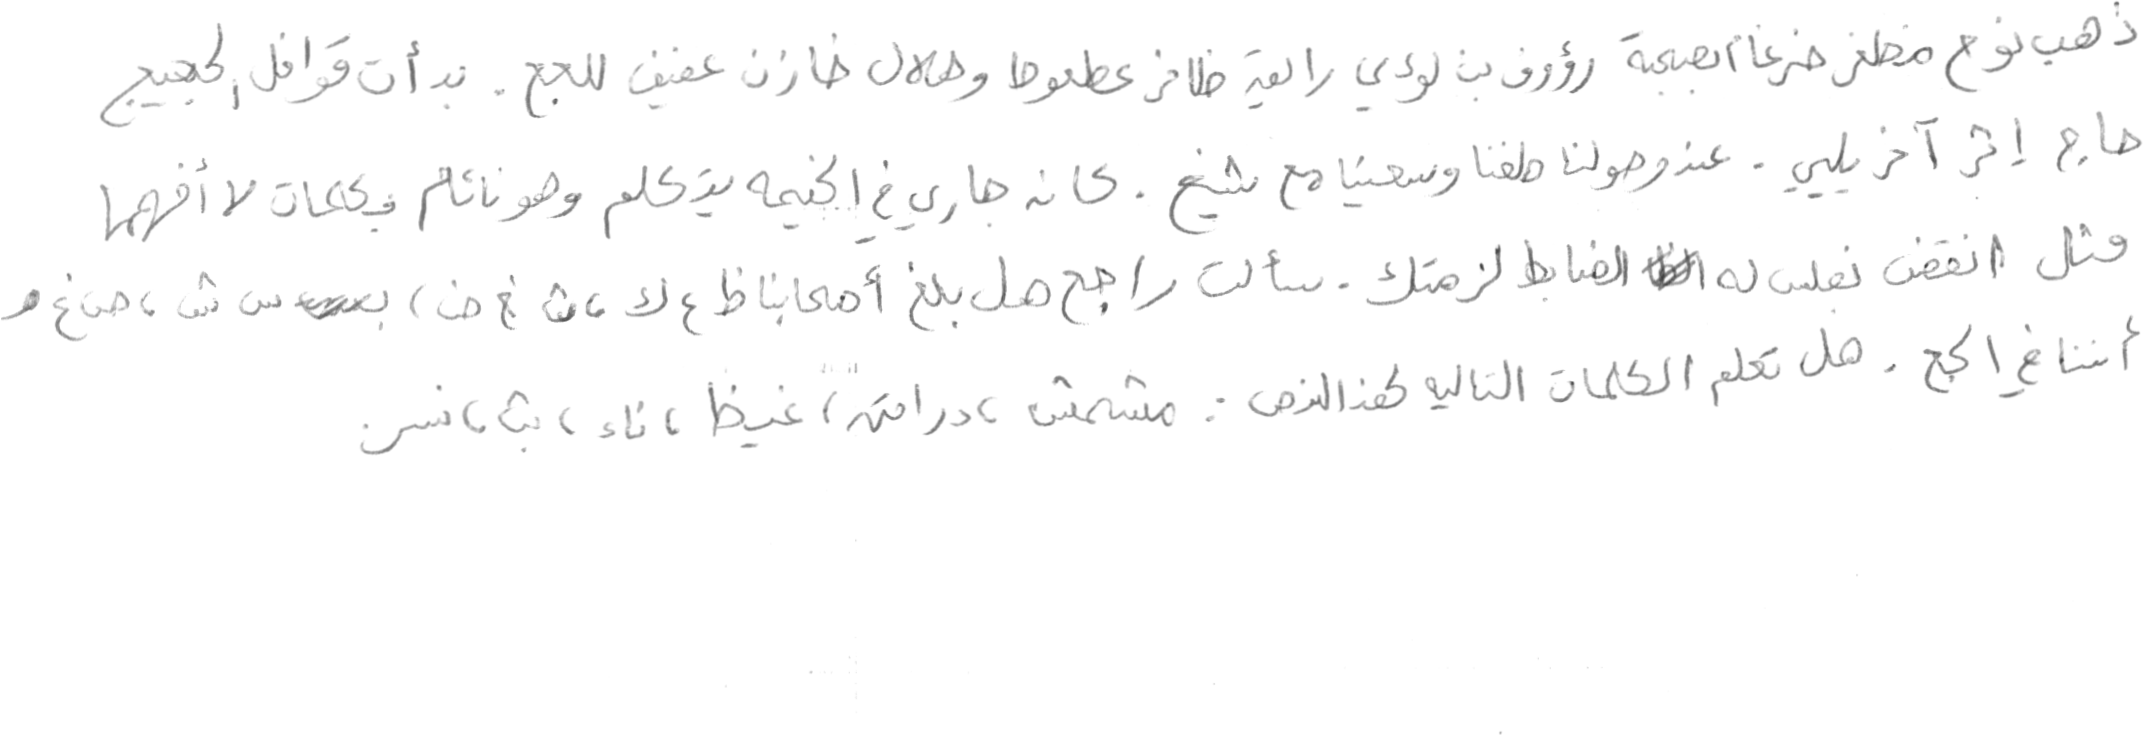 ذهب نوح مظفر ضرغام بصحبة رؤوف بن لؤي رايعة ظافر عطعوط وهلال خازن عفيف للحج . بدأت قوافل الحجيج
حاج إثر آخر يلبي . عند وصولنا طفنا وسعينا مع شيخ . كان جاري في الخيمه يتكلم وهو نائم وبكلمات لا أفهمها
مثل انقض نفلس له الضابط لزمتك . سألت راجح هل بلغ أصحابنا ظ ع ك ، ث غ ض ، س ش ، ص غ م
أننا في الحج . هل تعلم الكلمات التاليه لهذا النص : مشمش ، دراسة ، غيظ ، ناء ، بث ، نسر